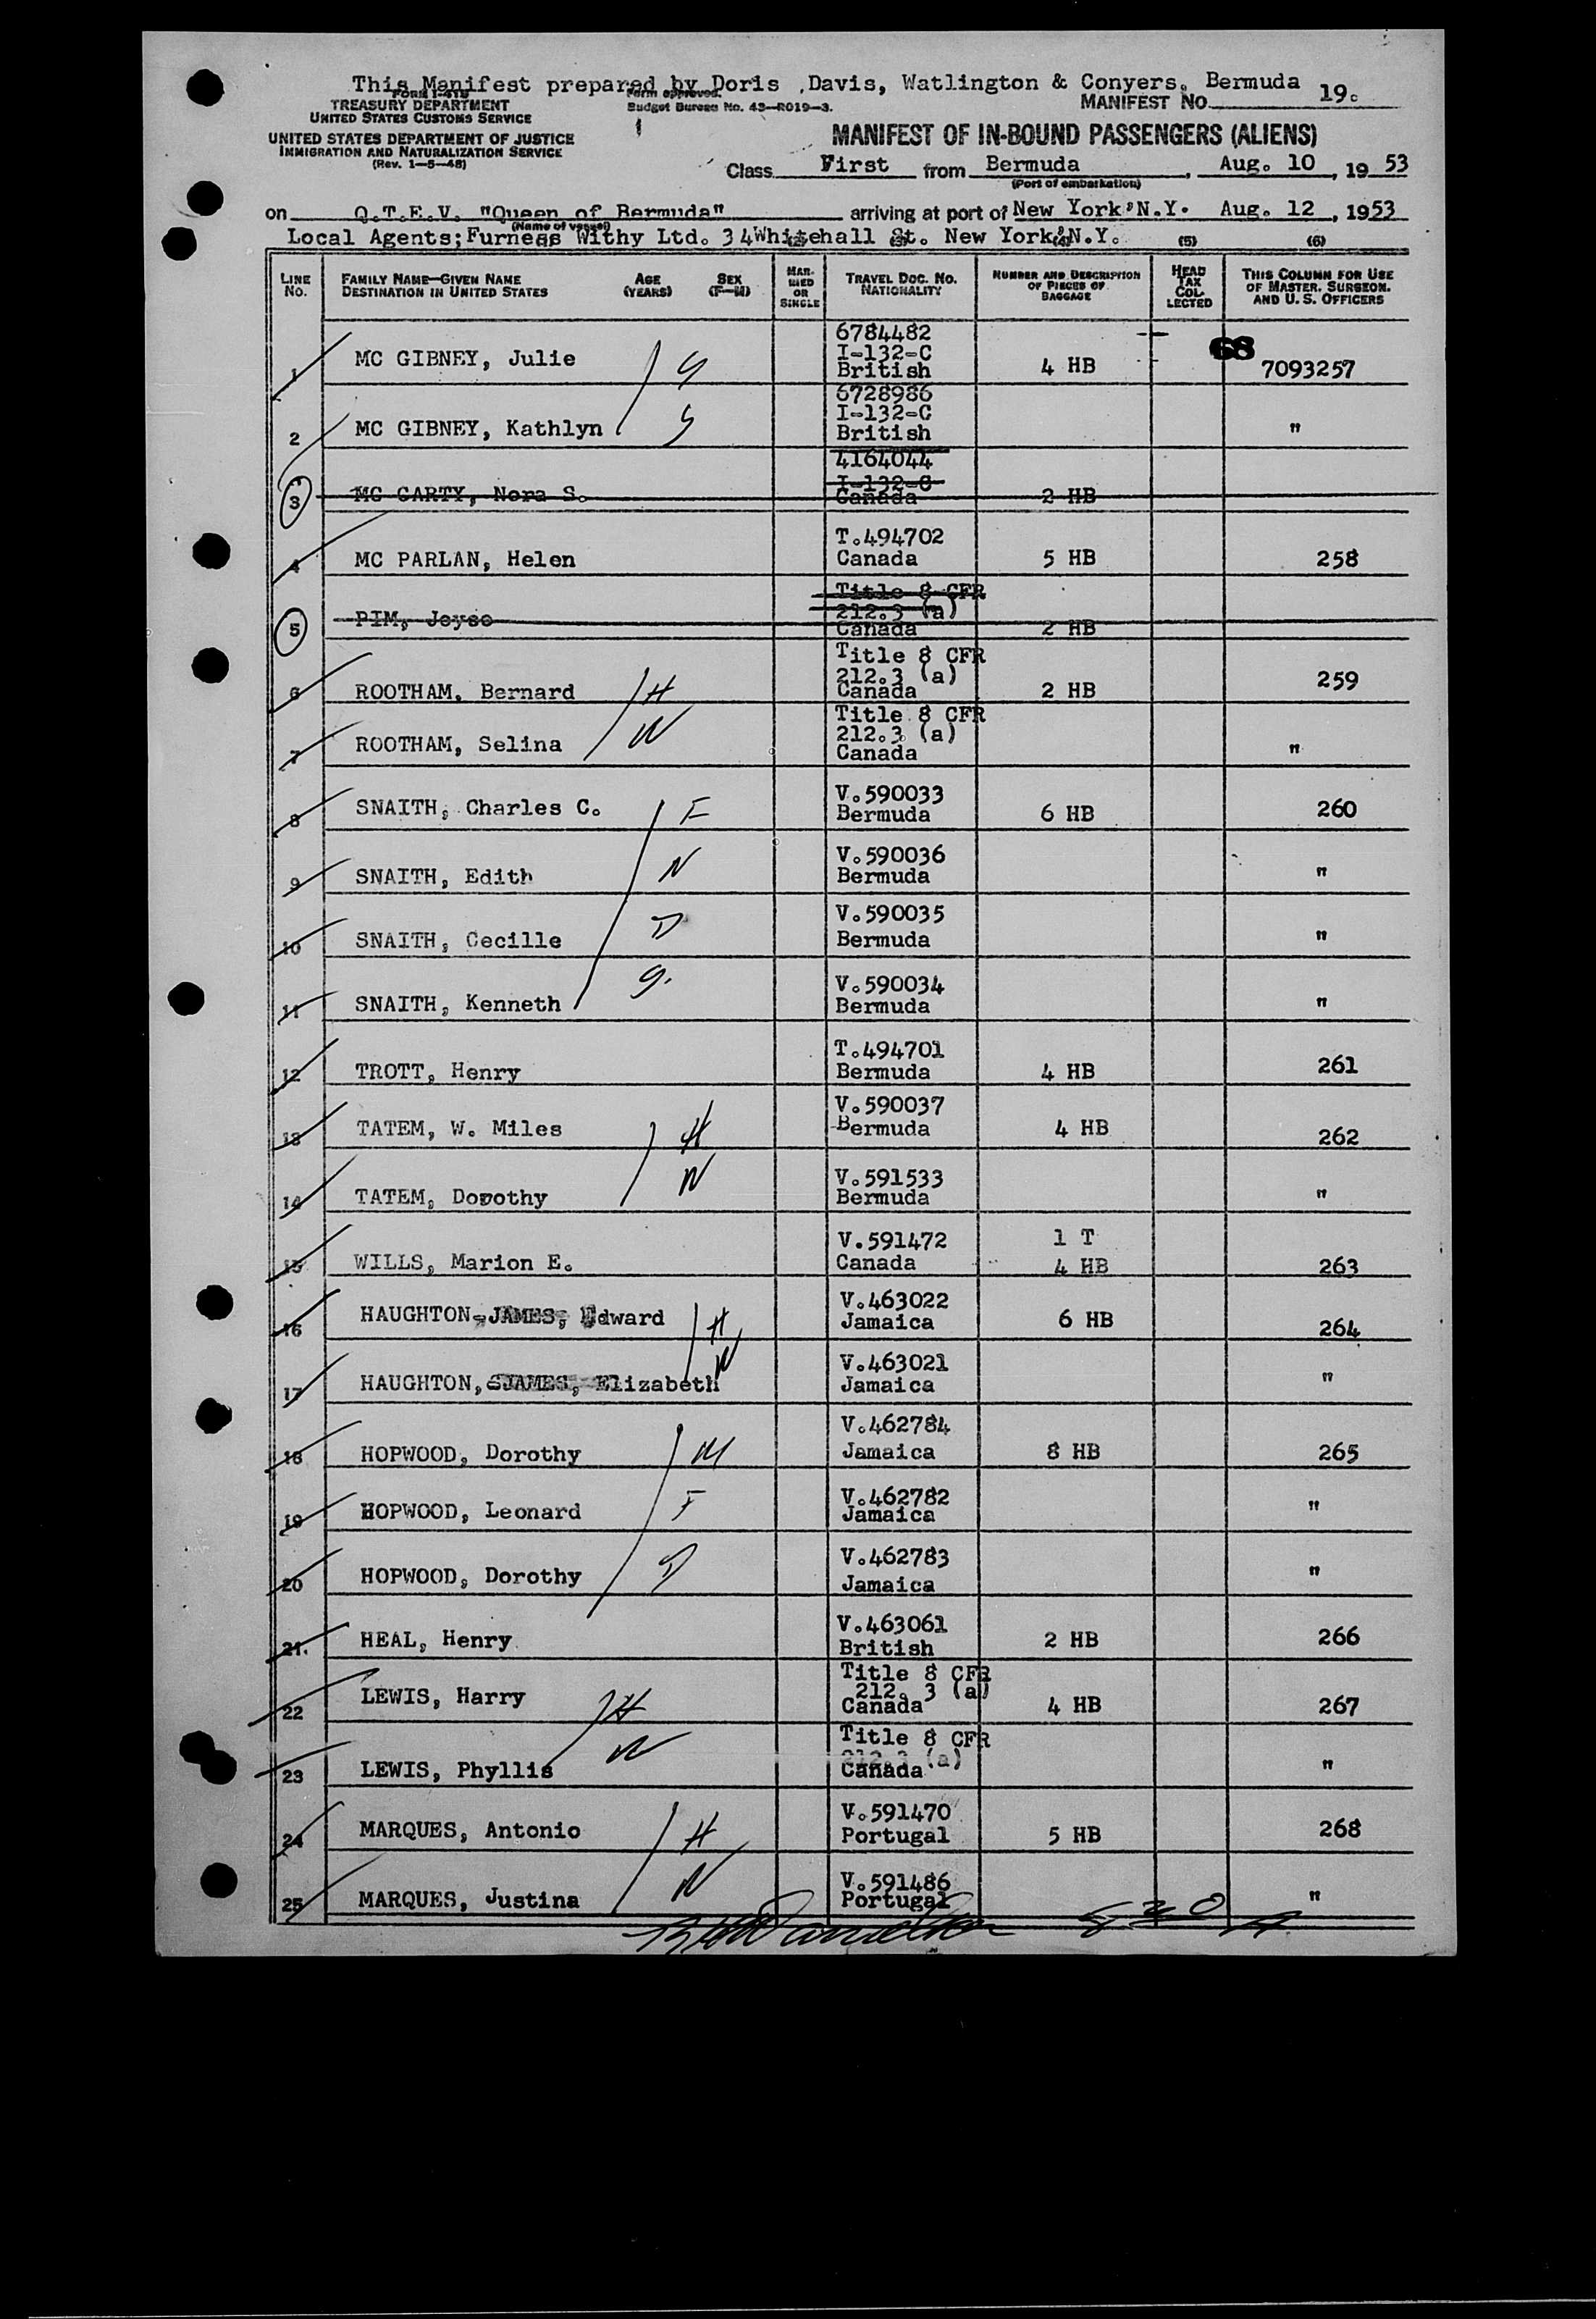 This Manifest prepared by Doris ,Davis, Watlington & Conyers. Bermuda
FORM I-415
TREASURY DEPARTMENT
UNITED STATES CUSTOMS SERVICE
Form approved.
Budget Bureau No. 43—R019—3.
MANIFEST NO. 19.
UNITED STATES DEPARTMENT OF JUSTICE
IMMIGRATION AND NATURALIZATION SERVICE
(Rev. 1—5—48)
MANIFEST OF IN-BOUND PASSENGERS (ALIENS)
Class First from Bermuda, Aug. 10, 1953
(Port of embarkation)
on Q.T.E.V. "Queen of Bermuda" arriving at port of New York,N.Y. Aug. 12, 1953
(Name of vessel)
Local Agents;Furness Withy Ltd. 34Whitehall St. New York,N.Y. (5) (6)
LINE No. FAMILY NAME—GIVEN NAME DESTINATION IN UNITED STATES AGE (YEARS) SEX (F—M) MARRIED OR SINGLE TRAVEL DOC. NO. NATIONALITY NUMBER AND DESCRIPTION OF PIECES OF BAGGAGE HEAD TAX COLLECTED THIS COLUMN FOR USE OF MASTER, SURGEON, AND U. S. OFFICERS
1 MC GIBNEY, Julie S 6784482 I-132-C British 4 HB 68 7093257
2 MC GIBNEY, Kathlyn S 6728986 I-132-C British "
3 MC CARTY, Nora S. 4164044 I-132-C Canada 2 HB
4 MC PARLAN, Helen T.494702 Canada 5 HB 258
5 PIM, Joyse Title 8 CFR 212.3 (a) Canada 2 HB
6 ROOTHAM, Bernard H Title 8 CFR 212.3 (a) Canada 2 HB 259
7 ROOTHAM, Selina W Title 8 CFR 212.3 (a) Canada "
8 SNAITH, Charles C. F V.590033 Bermuda 6 HB 260
9 SNAITH, Edith V.590036 Bermuda "
10 SNAITH, Cecille D V.590035 Bermuda "
11 SNAITH, Kenneth S. V.590034 Bermuda "
12 TROTT, Henry T.494701 Bermuda 4 HB 261
13 TATEM, W. Miles H V.590037 Bermuda 4 HB 262
14 TATEM, Dorothy W V.591533 Bermuda "
15 WILLS, Marion E. V.591472 Canada 1 T 4 HB 263
16 HAUGHTON-JAMES, Edward H V.463022 Jamaica 6 HB 264
17 HAUGHTON,-JAMES, Elizabeth W V.463021 Jamaica "
18 HOPWOOD, Dorothy M V.462784 Jamaica 8 HB 265
19 HOPWOOD, Leonard F V.462782 Jamaica "
20 HOPWOOD, Dorothy D V.462783 Jamaica "
21. HEAL, Henry V.463061 British 2 HB 266
22 LEWIS, Harry H Title 8 CFR 212. 3 (a) Canada 4 HB 267
23 LEWIS, Phyllis W Title 8 CFR 212.3 (a) Canada "
24 MARQUES, Antonio H V.591470 Portugal 5 HB 268
25 MARQUES, Justina W V.591486 Portugal "